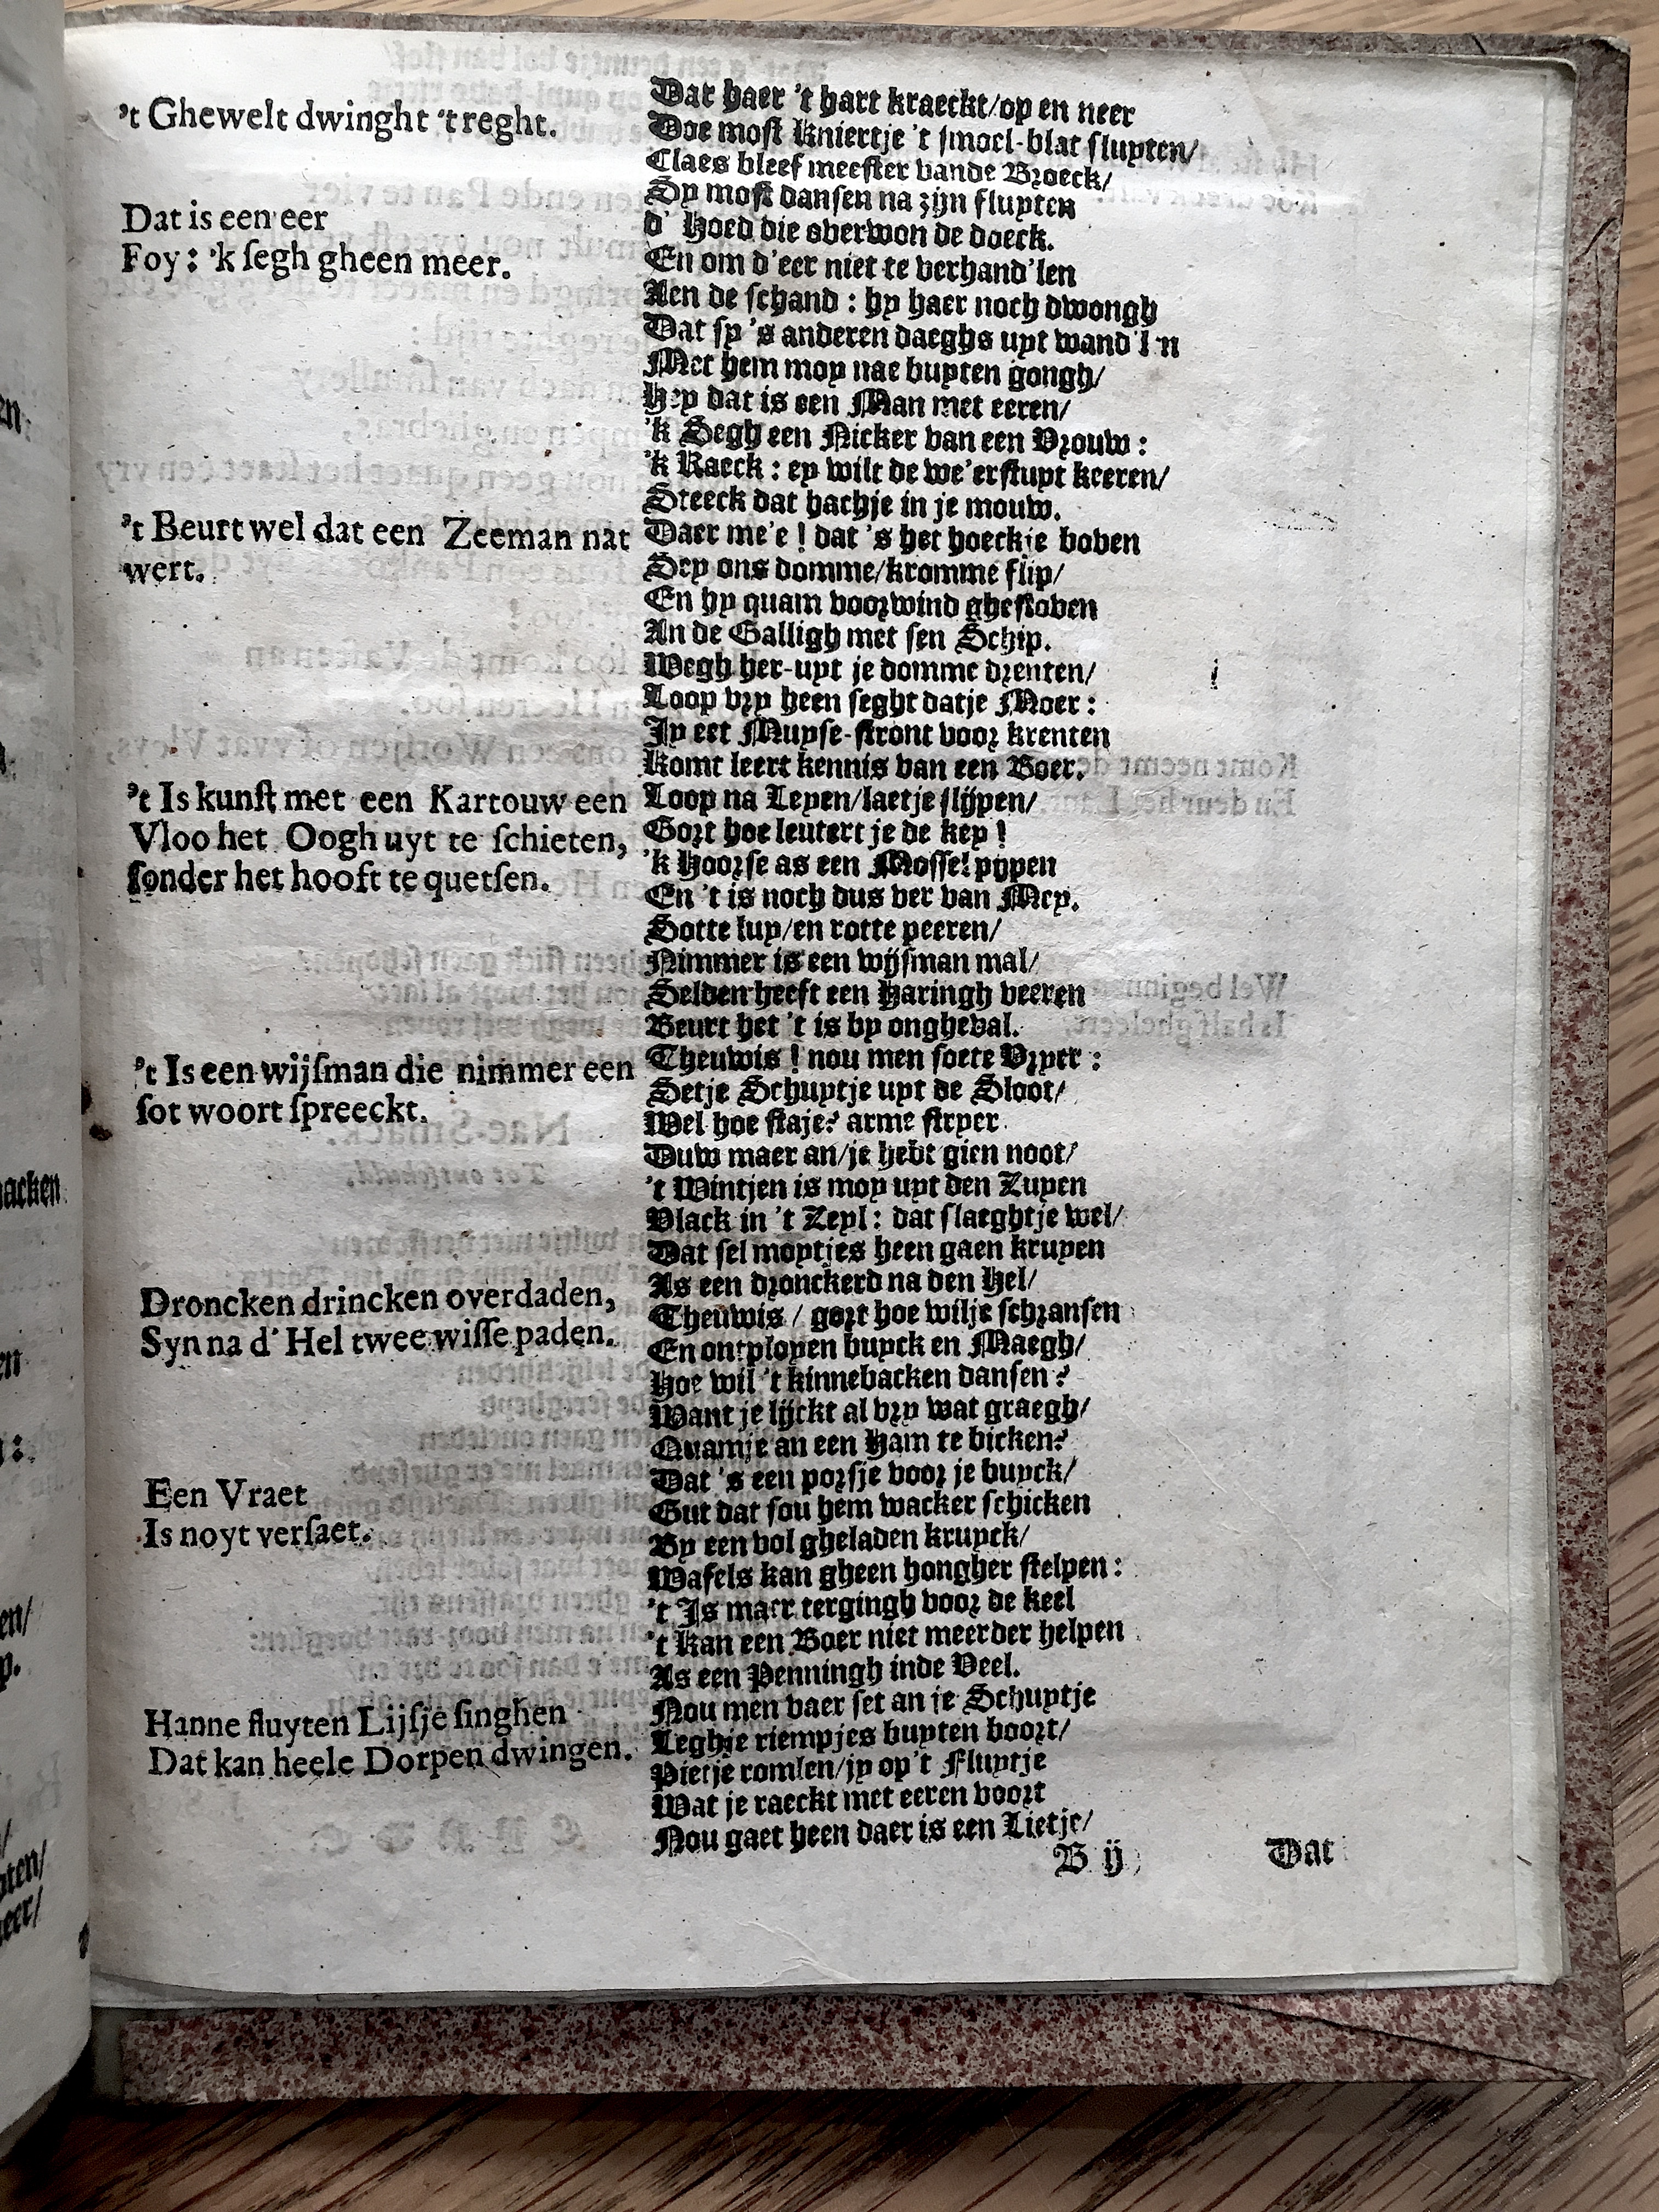 't Ghewelt dwinght 't reght.
Dat is een eer
Foy : 'k segh gheen meer.
't Beurt wel dat een Zeeman nat
wert.
't Is kunst met een Kartouw een
Vloo het Oogh uyt te schieten,
sonder het hooft te quetsen.
't Is een wijsman die nimmer een
sot woort spreeckt.
Droncken drincken overdaden,
Syn na d' Hel twee wisse paden.
Een Vraet
Is noyt versaet.
Hanne fluyten Lijsje singhen
Dat kan heele Dorpen dwingen.
Dat haer 't hart kraeckt/op en neer
Doe most Kniertje 't smoel-blat sluyten/
Claes bleef meester vande Broeck/
Sy most dansen na zijn fluyten
d' Hoed die overwon de doeck.
En om d'eer niet te verhand'len
Aen de schand : hy haer noch dwongh
Dat sy 's anderen daeghs uyt wand'l'n
Met hem moy nae buyten gongh/
Hey dat is een Man met eeren/
'k Segh een Nicker van een Vrouw :
'k Raeck : ey wilt de we'erstuyt keeren/
Steeck dat hachje in je mouw.
Daer me'e ! dat 's het hoeckje boven
Sey ons domme/kromme flip/
En hy quam voorwind ghestoven
An de Galligh met sen Schip.
Wegh her-uyt je domme drenten/
Loop vry heen seght datje Moer :
Jy eet Muyse-stront voor krenten
Komt leert kennis van een Boer.
Loop na Leyen/laetje slijpen/
Gort hoe leutert je de key !
'k Hoorse as een Mossel pypen
En 't is noch dus ver van Mey.
Sotte luy/en rotte peeren/
Nimmer is een wijsman mal/
Selden heeft een Haringh veeren
Beurt het 't is by ongheval.
Theuwis ! nou men soete Vryer :
Setje Schuytje uyt de Sloot/
Wel hoe staje? arme stryer
Duw maer an/je hebt gien noot/
't Wintjen is moy uyt den Zuyen
Vlack in 't Zeyl : dat slaeghtje wel/
Dat sel moytjes heen gaen kruyen
As een dronckerd na den Hel/
Theuwis / gort hoe wilje schransen
En ontployen buyck en Maegh/
Hoe wil 't kinnebacken dansen?
Want je lijckt al vry wat graegh/
Quamje an een Ham te bicken?
Dat 's een porsje voor je buyck/
Gut dat sou hem wacker schicken
By een vol gheladen kruyck/
Wafels kan gheen hongher stelpen :
't Is maer tergingh voor de keel
't Kan een Boer niet meerder helpen
As een Penningh inde Veel.
Nou men vaer set an je Schuytje
Leghje riempjes buyten boort/
Pietje romlen/jy op't Fluytje
Wat je raeckt met eeren voort
Nou gaet heen daer is een Lietje/
B ij Dat